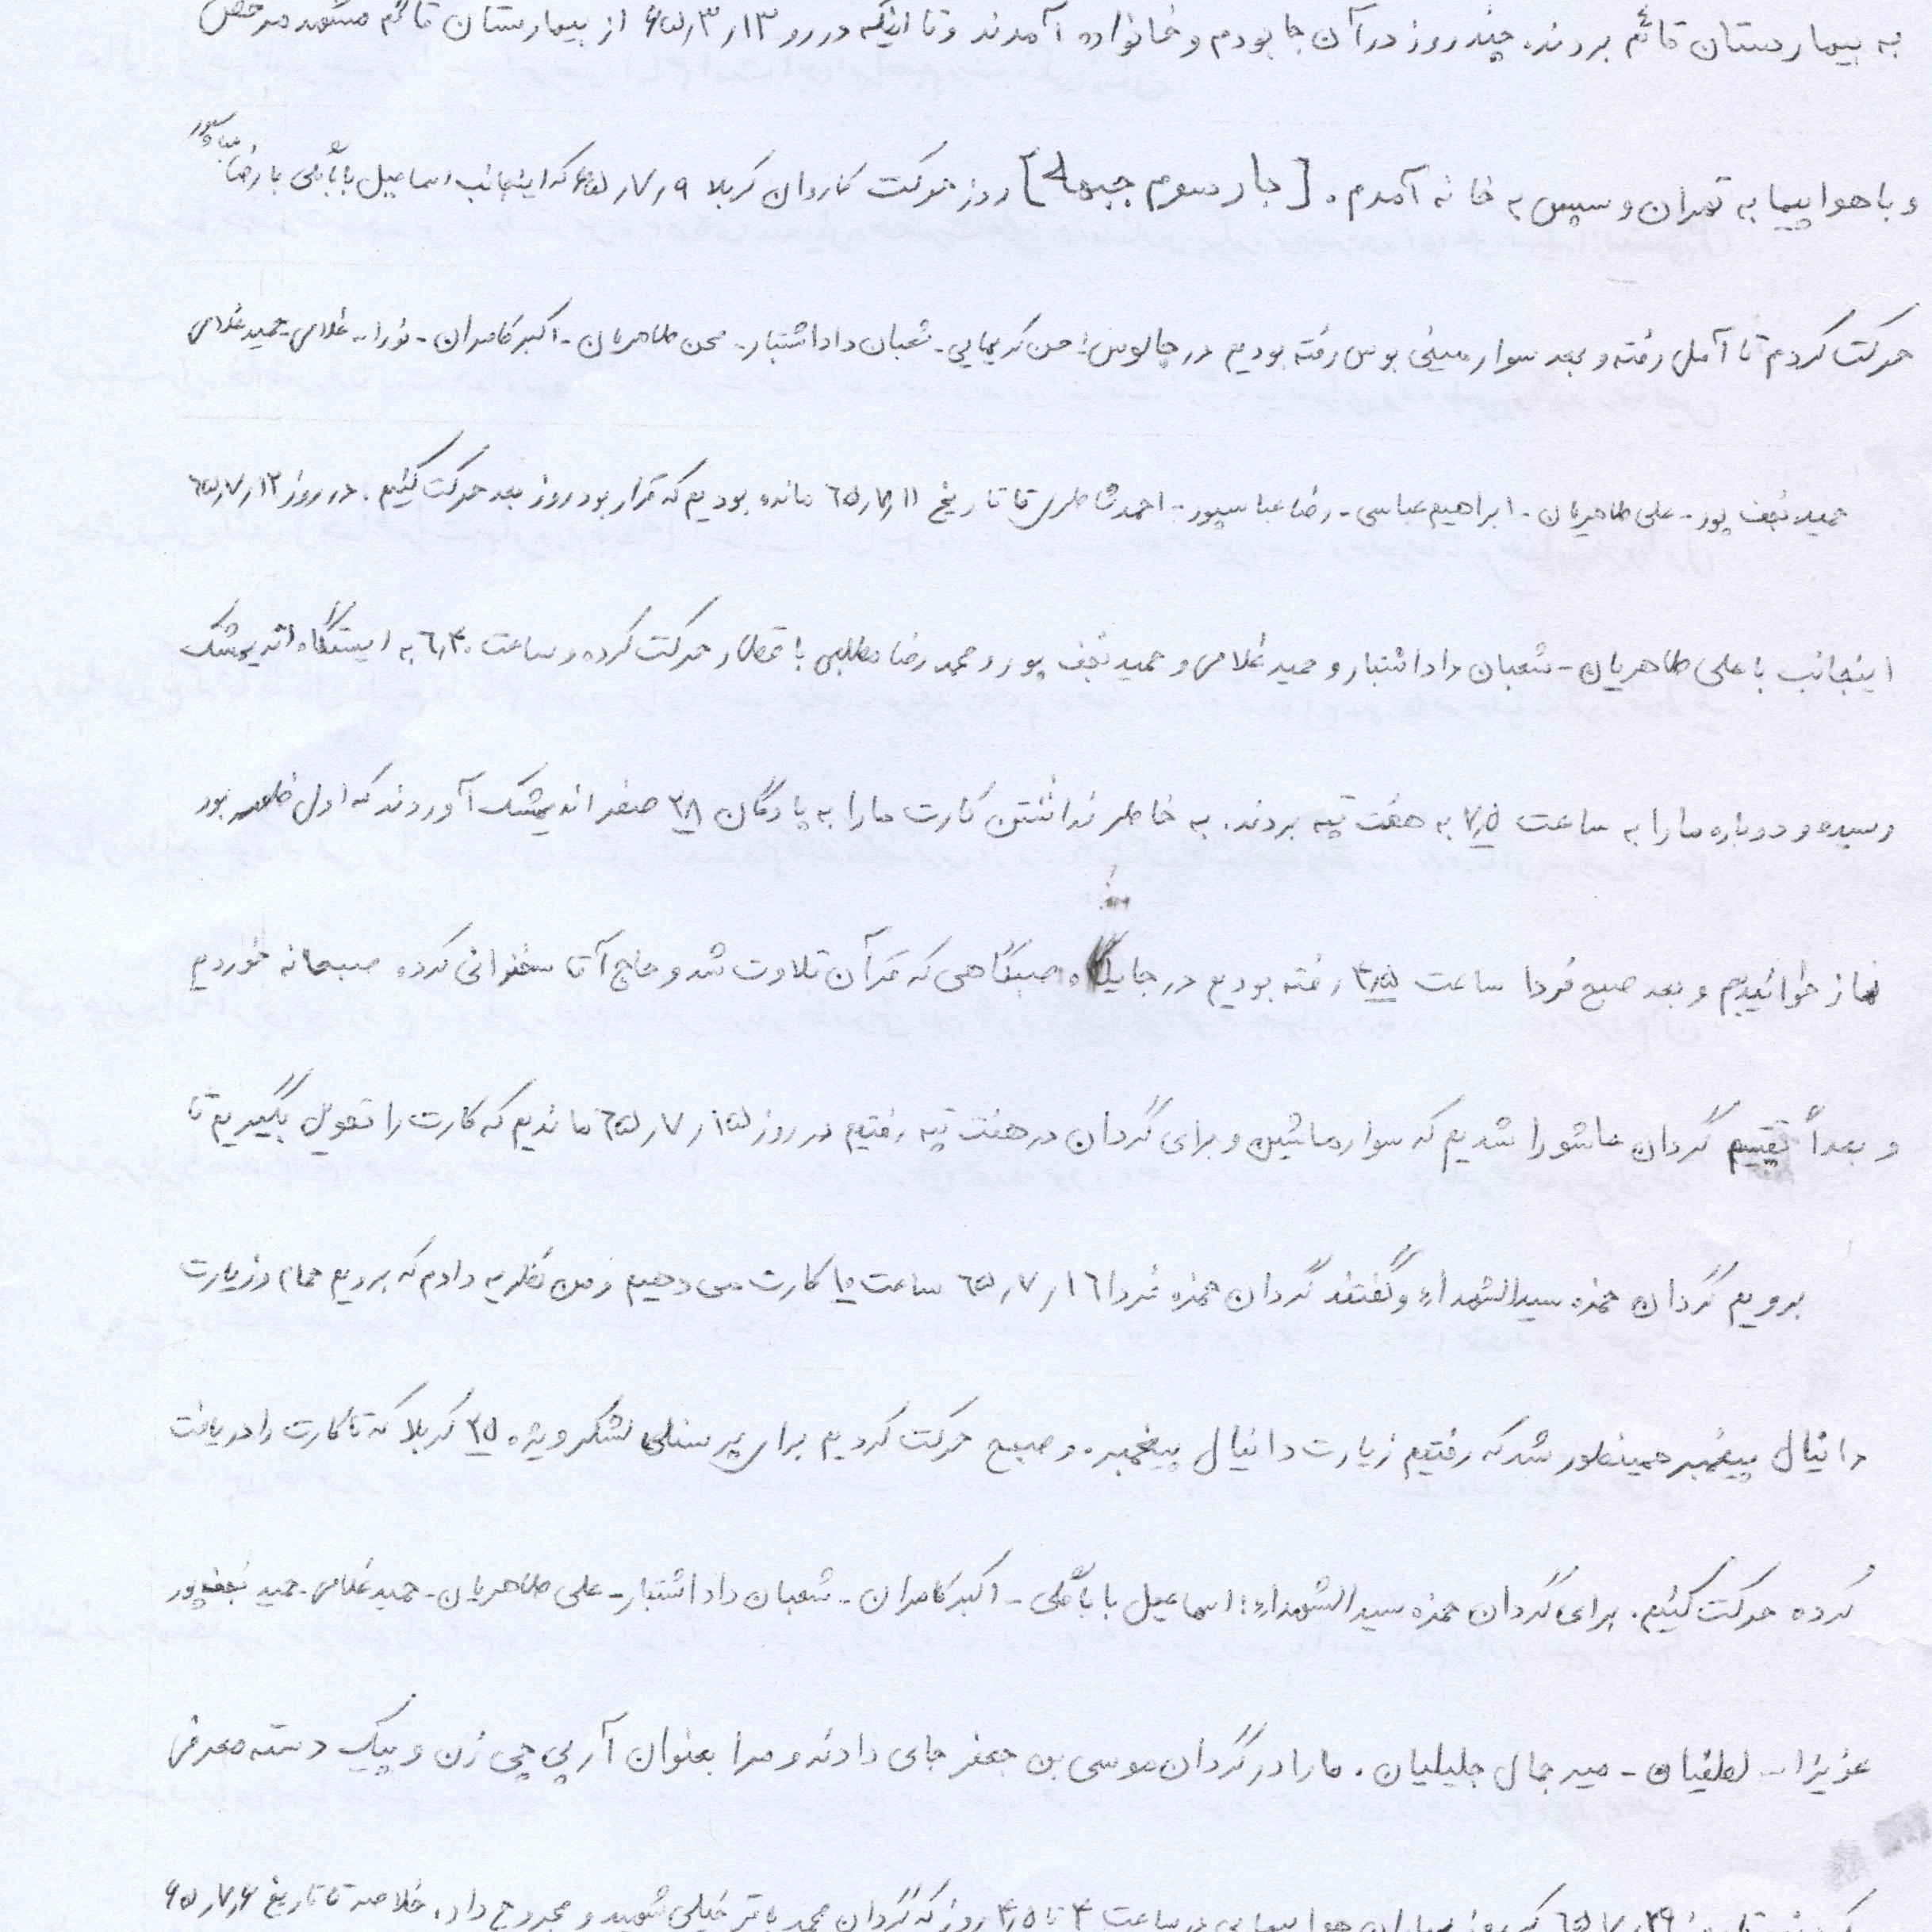 به بیمارستان قائم بردند. چند روز در آن جا بودم و خانواده آمدند و تا اینکه در رو ۶۵٫۳٫۱۳ از بیمارستان قائم مشهد مرخص
و با هواپیما به تهران و سپس به خانه آمدم. [بار سوم جبهه] روز حرکت کاروان کربلا ۶۵٫۷٫۹ که اینجانب اسماعیل بابائی با رضا عباسپور
حرکت کردم تا آمل رفته و بعد سوار مینی بوس رفته بودیم در چالوس: حسن کریمایی - شعبان داداشتبار - محسن طاهریان - اکبر کامران - نورا.. غلامی - حمید غلامی
حمید نجف پور - علی طاهریان - ابراهیم عباسی - رضا عباسپور - احمد شاطری تا تاریخ ۶۵٫۷٫۱۱ مانده بودیم که قرار بود روز بعد حرکت کنیم. در روز ۶۵٫۷٫۱۲
اینجانب با علی طاهریان - شعبان داداشتبار و حمید غلامی و حمید نجف پور و محمد رضا مطلبی با قطار حرکت کرده و ساعت ۶٫۴۰ به ایستگاه اندیمشک
رسیده و دوباره ما را به ساعت ۷٫۵ به هفت تپه بردند. به خاطر نداشتن کارت ما را به پادگان صفر اندیمشک آوردند که اول ظهر بود
نماز خواندیم و بعد صبح فردا ساعت ۴٫۵ رفته بودیم در جایگاه صبحگاهی که قرآن تلاوت شد و حاج آقا سخنرانی کرده صبحانه خوردیم
و بعداً تقسیم گردان عاشورا شدیم که سوار ماشین و برای گردان در هفت تپه رفتیم در روز ۶۵٫۷٫۱۵ ماندیم که کارت را تحویل بگیریم تا
برویم گردان حمزه سیدالشهداء و گفتند گردان حمزه فردا ۶۵٫۷٫۱۶ ساعت ۱۰ کارت می دهیم و من نظریه دادم که برویم حمام و زیارت
دانیال پیغمبر همینطور شد که رفتیم زیارت دانیال پیغمبر. و صبح حرکت کردیم برای پرسنلی لشکر ویژه ۲۵ کربلا که تا کارت را دریافت
کرده حرکت کنیم. برای گردان حمزه سیدالشهداء: اسماعیل بابائی - اکبر کامران - شعبان داداشتبار - علی طاهریان - حمید غلامی - حمید نجف پور
عزیزا.. لطفیان - میر جمال جلیلیان. ما را در گردان موسی بن جعفر جای دادند و مرا بعنوان آر پی جی زن و پیک دسته معرفی
۶۵٫۷٫۲۹ که روز بمباران هوا پیمایی در ساعت ۴ تا ۴٫۵ روز که گردان محمد باقر خیلی شهید و مجروح داد. خلاصه تا تاریخ